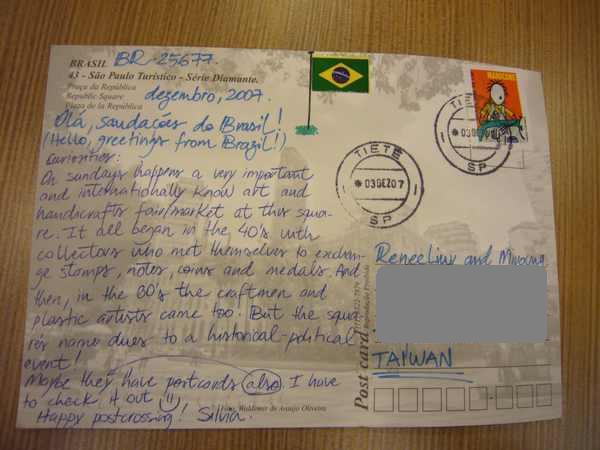 BRASIL BR-25677
43 - São Paulo Turístico - Série Diamante.
Praça da República
Republic Square
Plaza de la República
dezembro, 2007.
Olá, saudações do Brasil!
(Hello, greetings from Brazil!)
Curiosities:
On sundays happens a very important
and internationally know art and
handicrafts fair/market at this squa-
re. It all began in the 40's. with
collectors who met themselves to exchan-
ge stamps, notes, coins and medals. And
then, in the 60's the craftmen and
plastic artists came too. But the squa-
re's name dues to a historical-political
event!
Maybe they have postcards also. I have
to check it out
Happy postcrossing! Silvia.
Waldemar de Araujo Oliveira
Post card
MANGUE
TIETÊ
03DEZ07
SP
TIETÊ
SP
ReneeLiny and
TAIWAN